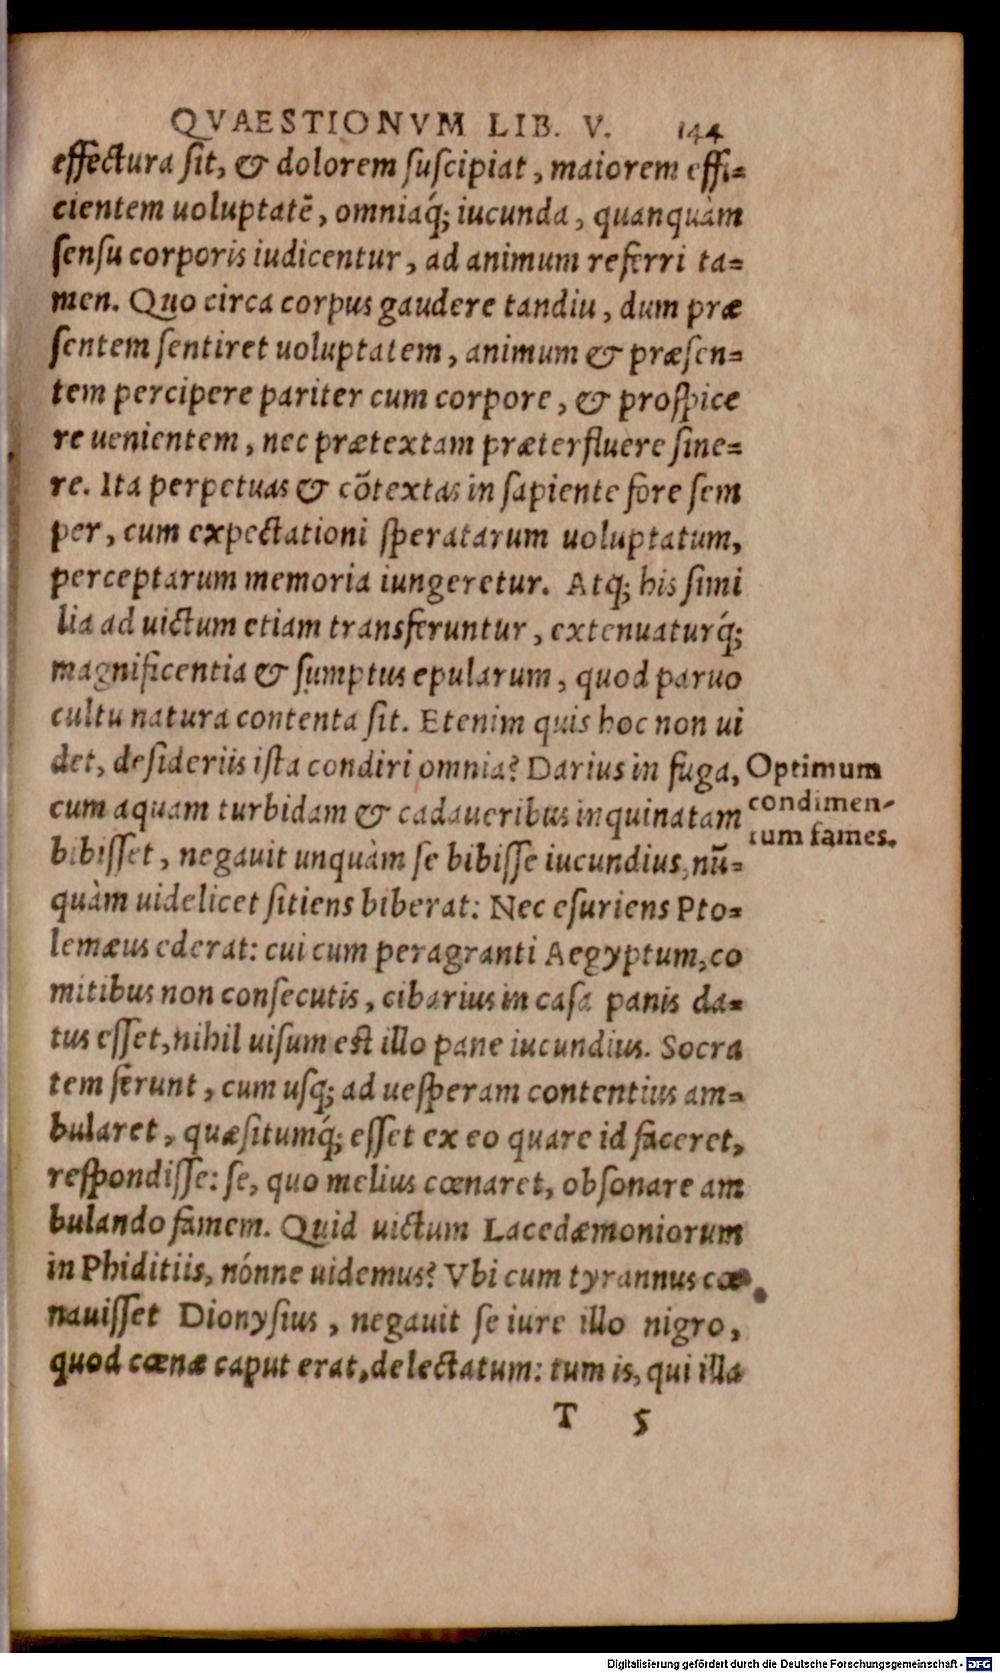 QVAESTIONVM LIB. V. 144
effectura sit, & dolorem suscipiat, maiorem effi=
cientem uoluptatē, omniaq́; iucunda, quanquàm
sensu corporis iudicentur, ad animum referri ta=
men. Quo circa corpus gaudere tandiu, dum præ
sentem sentiret uoluptatem, animum & præsen=
tem percipere pariter cum corpore, & prospice
re uenientem, nec prætextam præterfluere sine=
re. Ita perpetuas & cōtextas in sapiente fore sem
per, cum expectationi speratarum uoluptatum,
perceptarum memoria iungeretur. Atq; his simi
lia ad uictum etiam transferuntur, extenuaturq́;
magnificentia & sumptus epularum, quod paruo
cultu natura contenta sit. Etenim quis hoc non ui
det, desideriis ista condiri omnia? Darius in fuga,
cum aquam turbidam & cadaueribus inquinatam
bibisset, negauit unquàm se bibisse iucundius, nū=
quàm uidelicet sitiens biberat: Nec esuriens Pto=
lemæus ederat: cui cum peragranti Aegyptum, co
mitibus non consecutis, cibarius in casa panis da=
tus esset, nihil uisum est illo pane iucundius. Socra
tem ferunt, cum usq; ad uesperam contentius am=
bularet, quæsitumq́; esset ex eo quare id faceret,
respondisse: se, quo melius cœnaret, obsonare am
bulando famem. Quid uictum Lacedæmoniorum
in Phiditiis, nónne uidemus? Vbi cum tyrannus cœ
nauisset Dionysius, negauit se iure illo nigro,
quod cœnæ caput erat, delectatum: tum is, qui illa
T 5
Optimum
condimen-
tum fames.
Digitalisierung gefördert durch die Deutsche Forschungsgemeinschaft - DFG